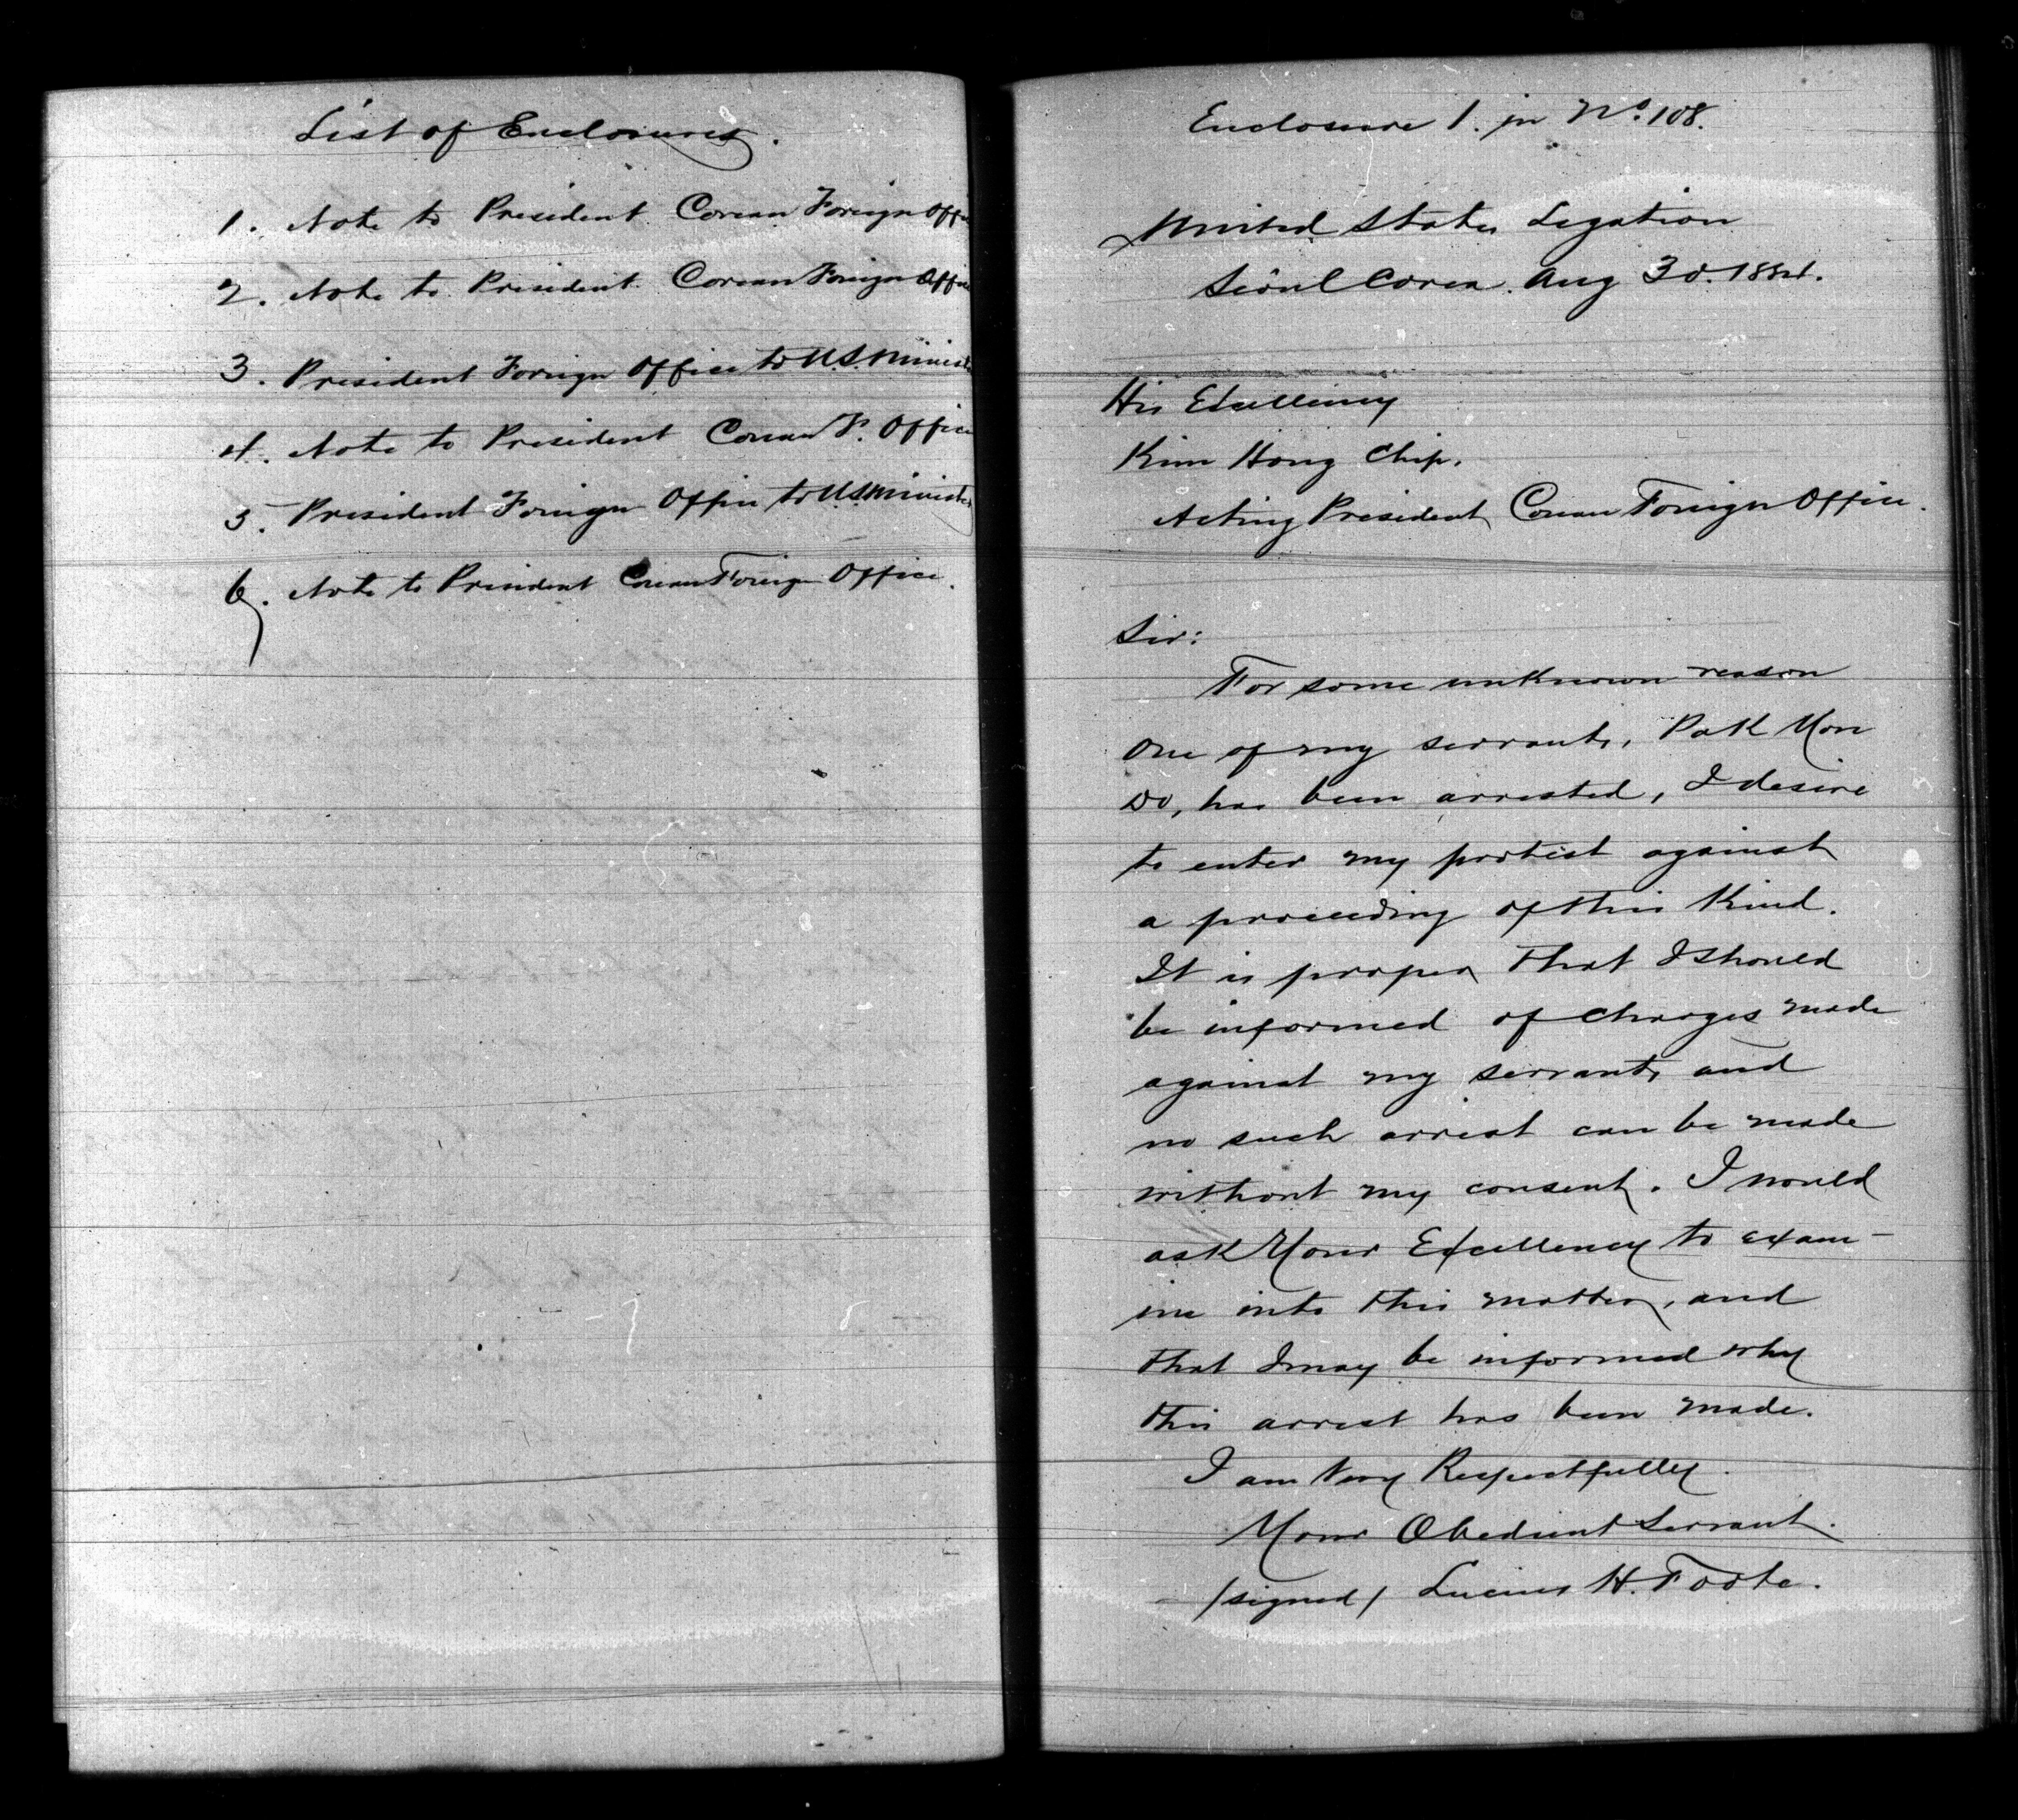 List of Enclosures.
1. Note to President Corean Foreign Offi
2. Note to President Corean Foreign Offic
3. President Foreign Office to U.S. Minist
4. Note to President Corean F. Office
5. President Foreign Office to U.S. Ministe
6. Note to President Corean Foreign Office.
Enclosure 1. in No. 108.
United States Legation
Seoul Corea. Aug 30. 1884.
His Excellency
Kim Hong Chip.
Acting President Corean Foreign Office.
Sir:
For some unknown reason
one of my servants, Pak Yon
Do, has been arrested, I desire
to enter my protest against
a proceeding of this kind.
It is proper that I should
be informed of charges made
against my servants and
no such arrest can be made
without my consent. I would
ask Your Excellency to exam-
ine into this matter, and
that I may be informed why
this arrest has been made.
I am Very Respectfully.
Your Obedient Servant.
/signed/ Lucius H. Foote.